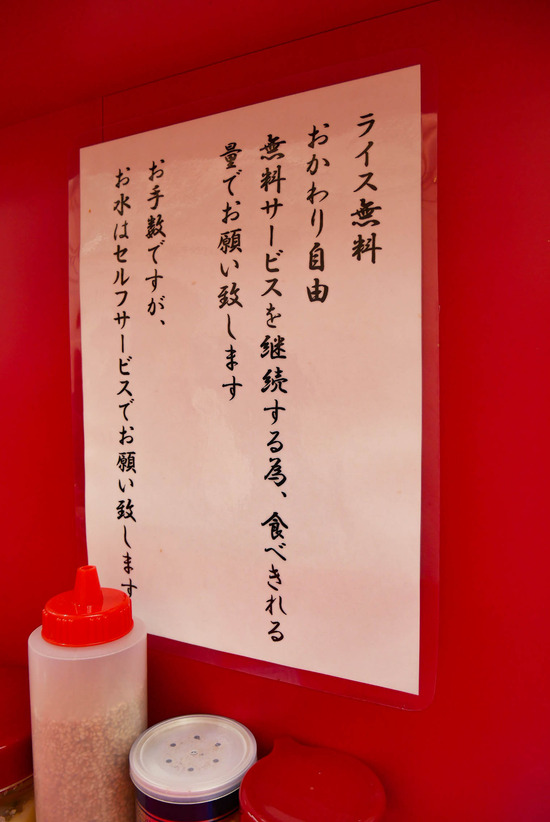 ライス無料
おかわり自由
無料サービスを継続する為、食べきれる
量でお願い致します
お手数ですが、
お水はセルフサービスでお願い致します